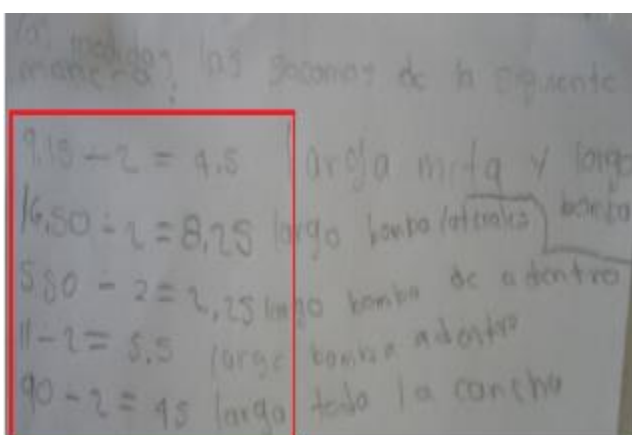 las medidas las sacamos de la siguiente
manera?
9.15 - 2 = 4.5 larga mrtq y largo
16,50 ÷ 2 = 8,25 largo bomba laterales bomba
5.50 - 2 = 2,25 largo bomba de adentro
11 - 2 = 5.5 large bomba adentro
90 - 2 = 45 largo toda la cancha